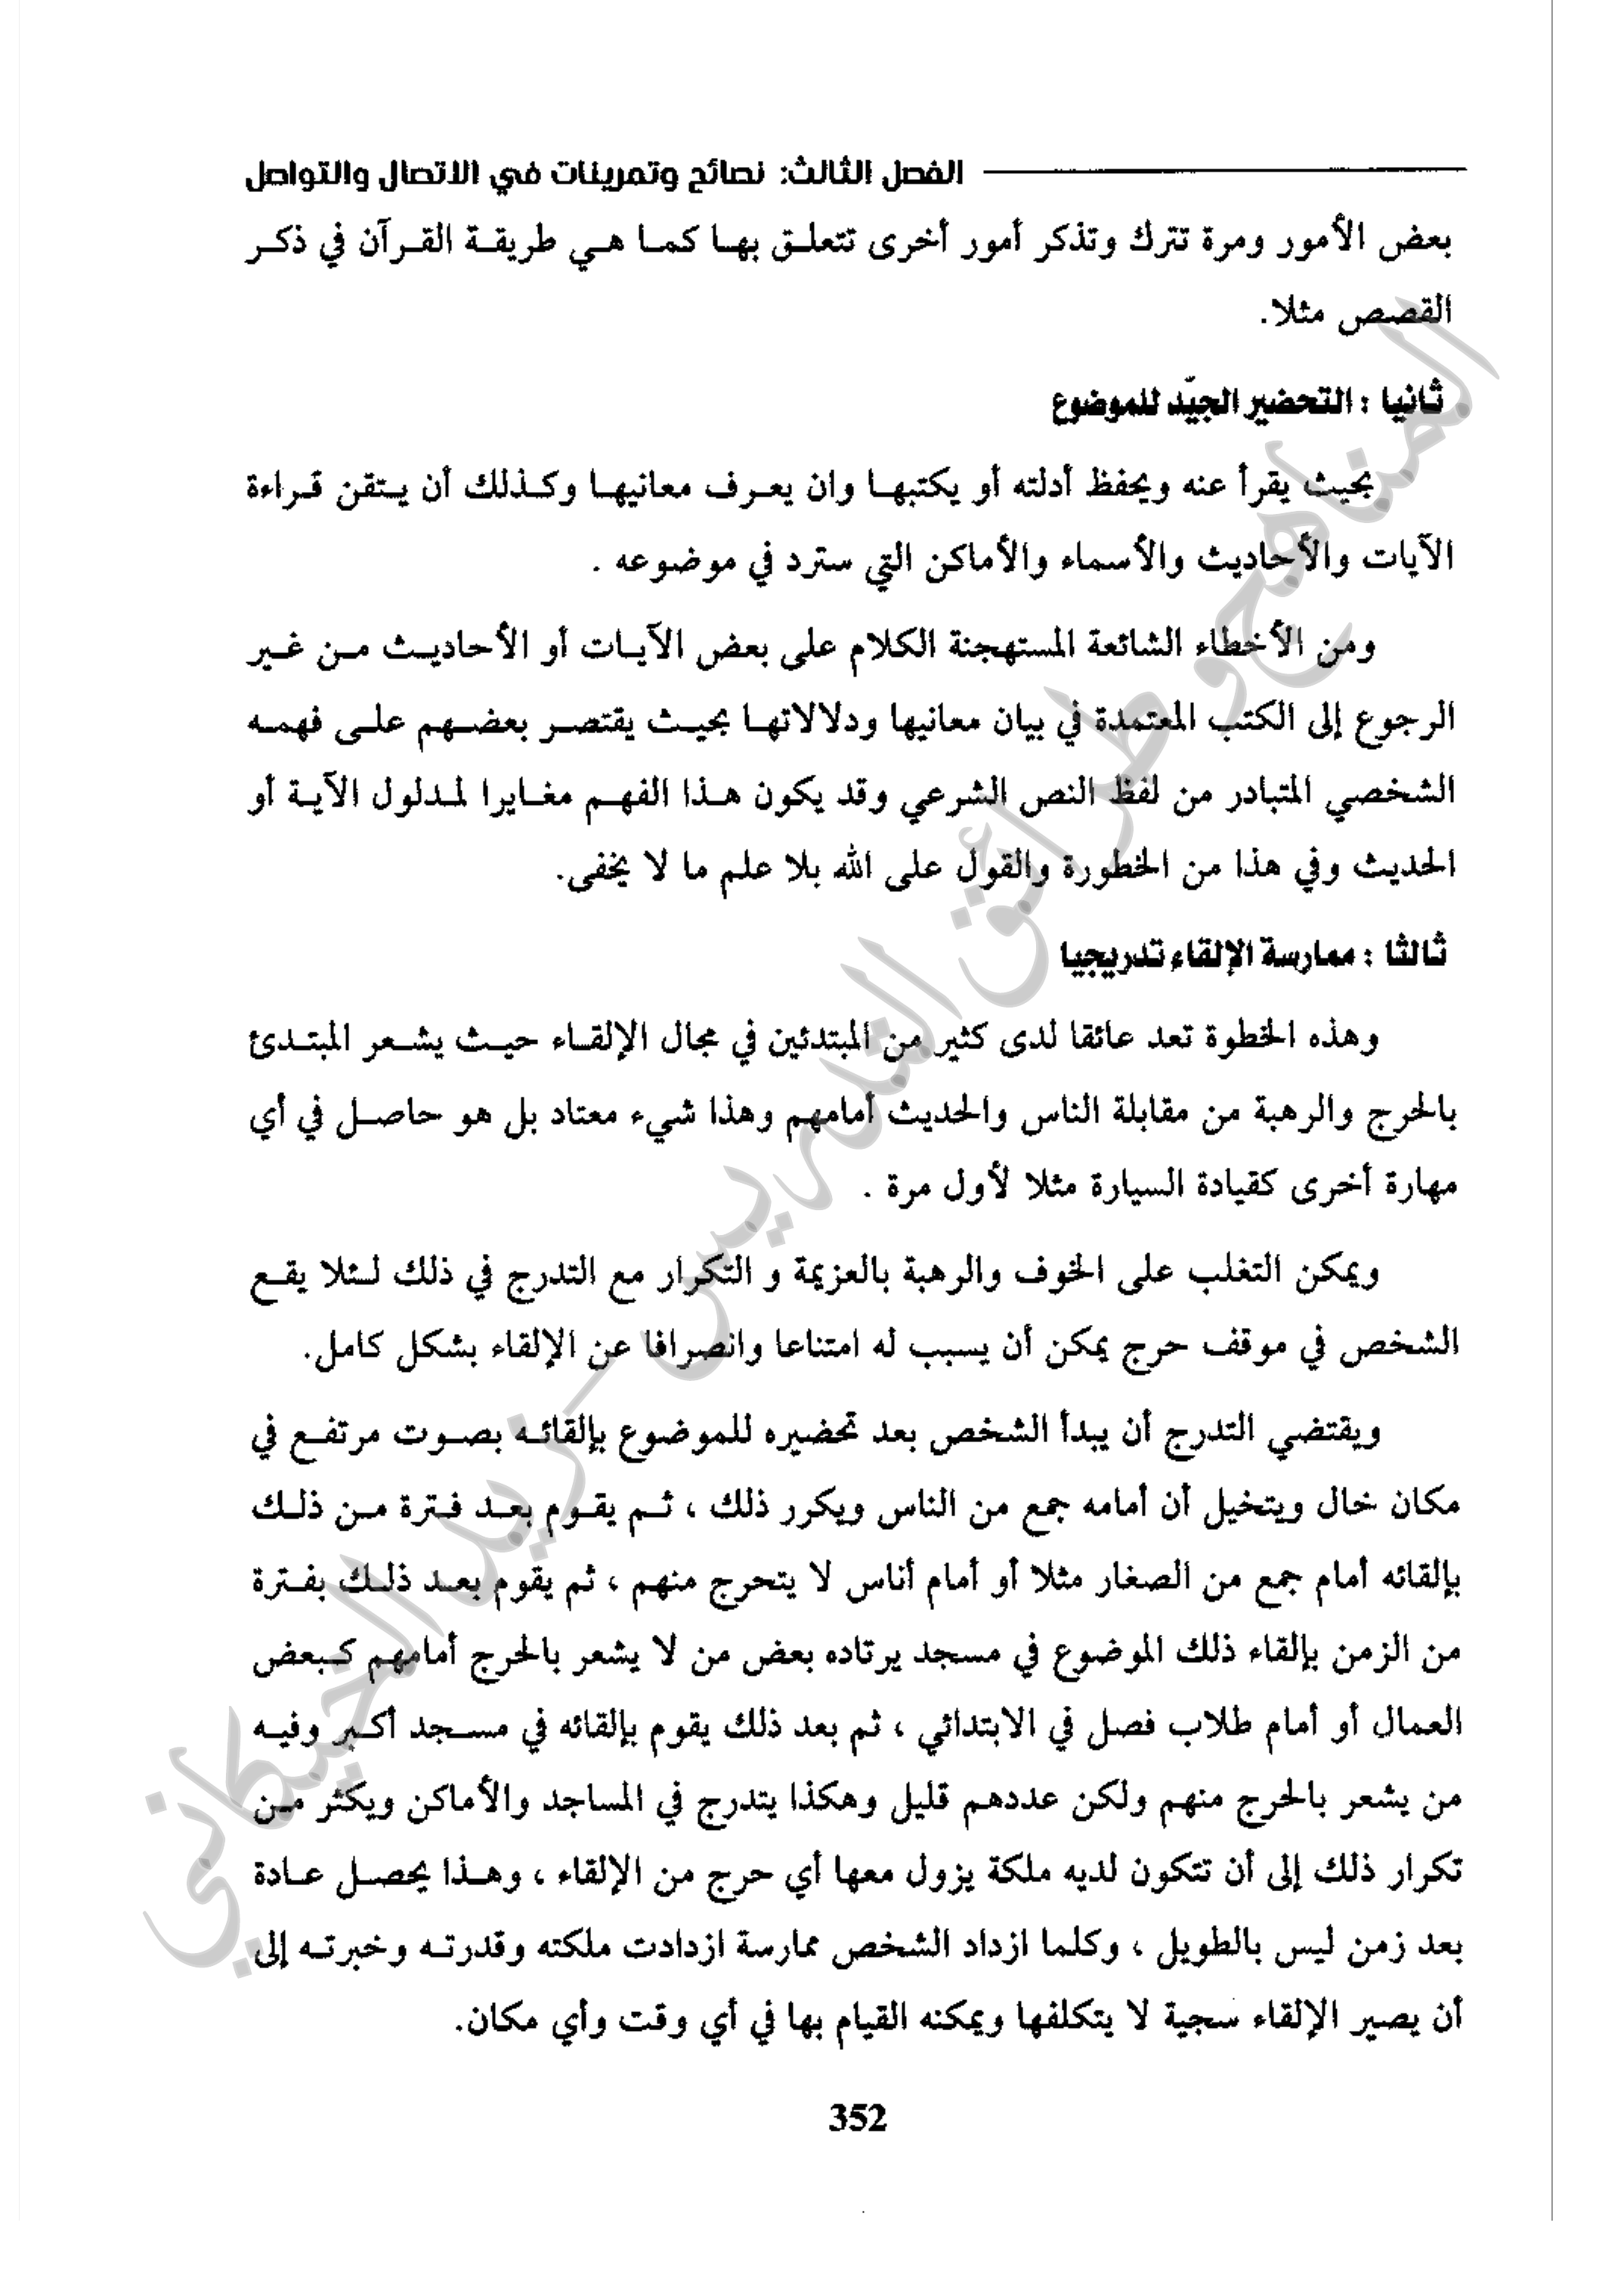 الفصل الثالث: نصائح وتمرينات في الاتصال والتواصل
بعض الأمور ومرة تترك وتذكر أمور أخرى تتعلق بها كما هي طريقة القرآن في ذكر
القصص مثلا.
ثانيا : التحضير الجيّد للموضوع
بحيث يقرأ عنه ويحفظ أدلته أو يكتبها وان يعرف معانيها وكذلك أن يتقن قراءة
الآيات والأحاديث والأسماء والأماكن التي سترد في موضوعه .
ومن الأخطاء الشائعة المستهجنة الكلام على بعض الآيات أو الأحاديث من غير
الرجوع إلى الكتب المعتمدة في بيان معانيها ودلالاتها بحيث يقتصر بعضهم على فهمه
الشخصي المتبادر من لفظ النص الشرعي وقد يكون هذا الفهم مغايرا لمدلول الآية أو
الحديث وفي هذا من الخطورة والقول على الله بلا علم ما لا يخفى.
ثالثا : ممارسة الإلقاء تدريجيا
وهذه الخطوة تعد عائقا لدى كثير من المبتدئين في مجال الإلقاء حيث يشعر المبتدئ
بالحرج والرهبة من مقابلة الناس والحديث أمامهم وهذا شيء معتاد بل هو حاصل في أي
مهارة أخرى كقيادة السيارة مثلا لأول مرة .
ويمكن التغلب على الخوف والرهبة بالعزيمة و التكرار مع التدرج في ذلك لئلا يقع
الشخص في موقف حرج يمكن أن يسبب له امتناعا وانصرافا عن الإلقاء بشكل كامل.
ويقتضي التدرج أن يبدأ الشخص بعد تحضيره للموضوع بإلقائه بصوت مرتفع في
مكان خال ويتخيل أن أمامه جمع من الناس ويكرر ذلك ، ثم يقوم بعد فترة من ذلك
بإلقائه أمام جمع من الصغار مثلا أو أمام أناس لا يتحرج منهم ، ثم يقوم بعد ذلك بفترة
من الزمن بإلقاء ذلك الموضوع في مسجد يرتاده بعض من لا يشعر بالحرج أمامهم كبعض
العمال أو أمام طلاب فصل في الابتدائي ، ثم بعد ذلك يقوم بإلقائه في مسجد أكبر وفيه
من يشعر بالحرج منهم ولكن عددهم قليل وهكذا يتدرج في المساجد والأماكن ويكثر من
تكرار ذلك إلى أن تتكون لديه ملكة يزول معها أي حرج من الإلقاء ، وهذا يحصل عادة
بعد زمن ليس بالطويل ، وكلما ازداد الشخص ممارسة ازدادت ملكته وقدرته وخبرته إلى
أن يصير الإلقاء سجية لا يتكلفها ويمكنه القيام بها في أي وقت وأي مكان.
352
المناهج وطرائق التدريس - زيد الخيكاني